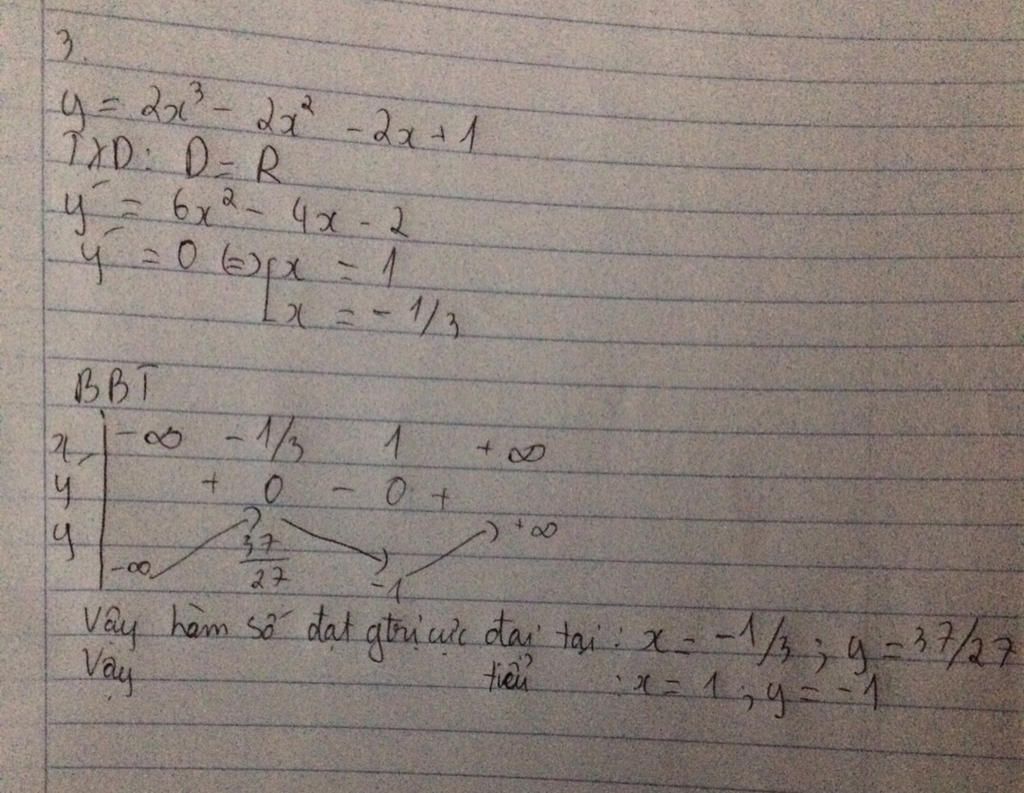 3.
y = 2x³ - 2x² - 2x + 1
TXD: D = R
y' = 6x² - 4x - 2
y' = 0 (=) [ x = 1
[ x = - 1/3
BBT
x | -∞ - 1/3 1 + ∞
y' | + 0 - 0 +
y | -∞ 37/27 -1 +∞
Vậy hàm số đạt gtrị cực đại tại : x = -1/3 ; y = 37/27
Vậy tiểu : x = 1 ; y = -1